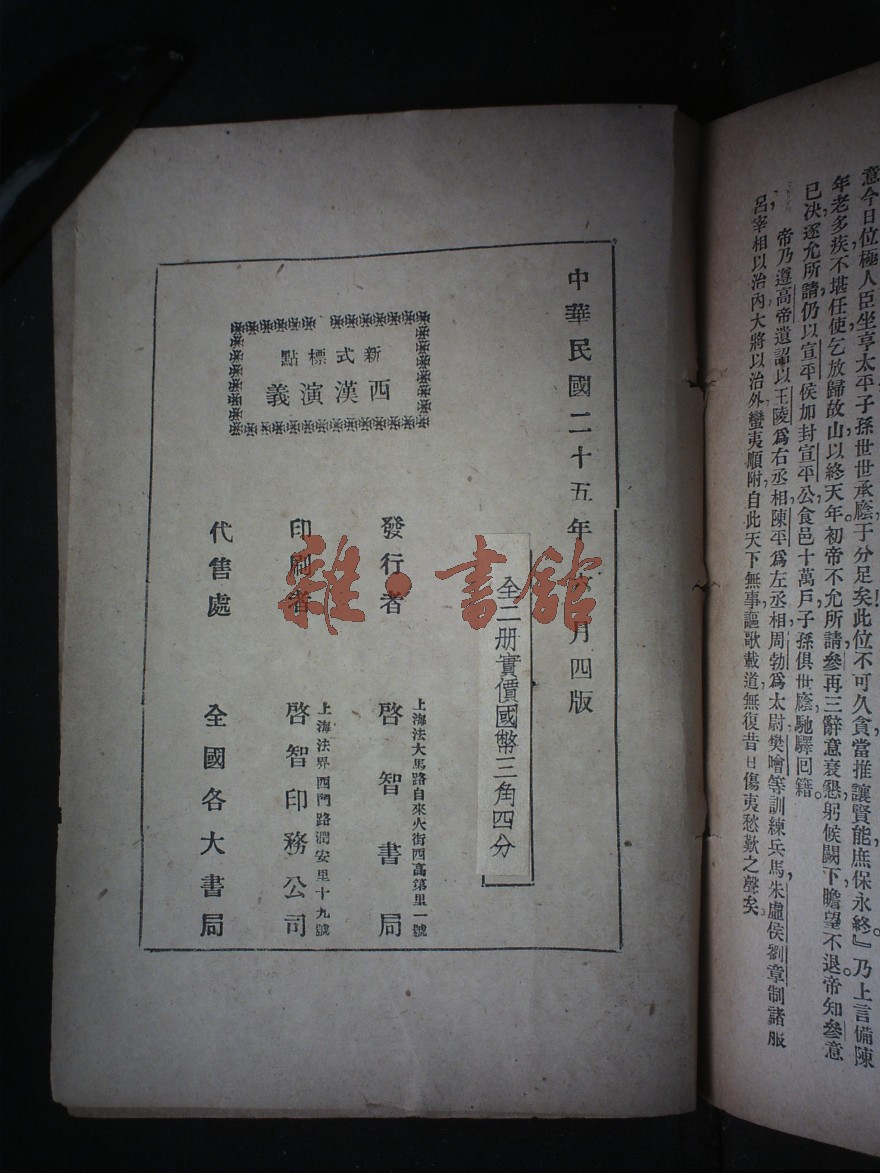 意今日位極人臣坐享太平子孫世世承廕于分足矣此位不可久貪當推讓賢能庶保永終。』乃上言備陳
年老多疾不堪任使乞放歸故山以終天年初帝不允所請參再三辭意衰懇躬候闕下瞻望不退帝知參意
已决遂允所請仍以宣平侯加封宣平公食邑十萬戶子孫俱世廕馳驛回籍。
帝乃遵高帝遺詔以王陵爲右丞相陳平爲左丞相周勃爲太尉樊噲等訓練兵馬朱盧侯劉章制諸服
呂宰相以治內大將以治外蠻夷順附自此天下無事謳歌載道無復昔日傷夷愁歎之聲矣。
中華民國二十五年六月四版
新式標點
西漢演義
全二册實價國幣三角四分
發行者
上海法大馬路自來火街西高第里一號
啓智書局
印刷者
上海法界西門路潤安里十九號
啓智印務公司
代售處
全國各大書局
雜·書館